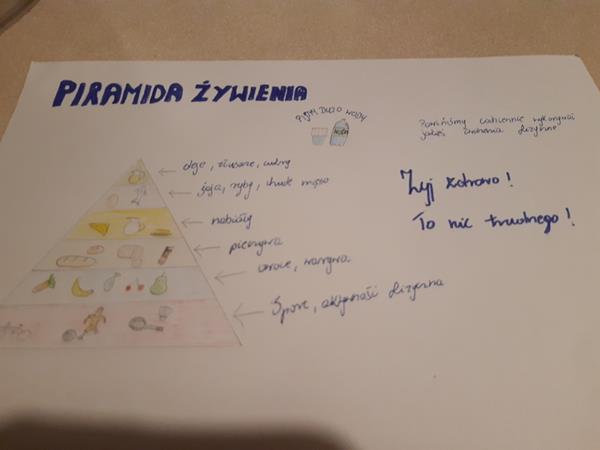 PIRAMIDA ŻYWIENIA
Pijmy DUŻO WODY
WODA
Powinniśmy codziennie wykonywać
jakieś ćwiczenia fizyczne
Żyj zdrowo!
To nic trudnego!
oleje, tłuszcze, cukry
jaja, ryby, chude mięso
nabiały
pieczywa
owoce, warzywa
Sport, aktywność fizyczna